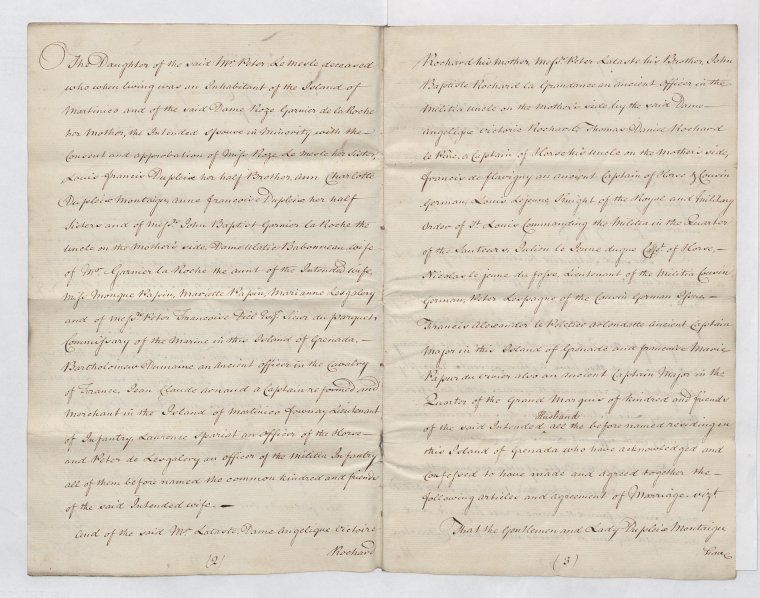 The Daughter of the said Mr. Peter Le Mesle deceased
who when living was an Inhabitant of the Island of
Martinico and of the said Dame Roze Garnier de la Roche
her Mother, the Intended Spouse in Minority with the
Consent and approbation of Miss Roze Le Mesle her Sister,
Louis francis Dupleix her half Brother, ann Charlotte
Dupleix Montaigu, anne francoise Dupleix her half
Sisters and of Messrs. John Baptist Garnier la Roche the
uncle on the Mother's side, Dame Babonneau wife
of Mr. Garnier la Roche the aunt of the Intended wife,
Miss Monique Papin, Mariette Papin, Marianne Lesgalery
and of Messrs. Peter Francoise Esqr. Sieur du parquet
Commissary of the Marine in this Island of Grenada,
Bartholomew Dumaine an Ancient officer in the Cavalry
of France, Jean Claude arnaud a Captain reformed and
Merchant in the Island of Martinico Lieutenant
of Infantry, Laurence Spariat an officer of the Horse
and Peter de Lesgalery an officer of the Militia Infantry
all of them before named the common kindred and friends
of the said Intended wife.
And of the said Mr. Lataste, Dame Angelique Victoire
Rochard
(2)
Rochard his mother, Messrs. Peter Lataste his Brother, John
Baptiste Rochard la Grandance an ancient officer in the
Militia uncle on the Mother's side by the said Dame
Angelique Victoire Rochard, Thomas Daniel Rochard
le Pine, a Captain of Horse his uncle on the Mother's side,
francis de flavigny an ancient Captain of Horse & Cousin
German, Louis Lejeune Knight of the Royal and Military
order of St. Louis Commanding the Militia in the Quarter
of the Sauteurs, Julien le Jeune dugue of Horse,
Nicolas le jeune du fosse, Lieutenant of the Militia Cousin
German, Peter Lespagne of the Cousin German
Francis Alexander le Peletier ancient Captain
Major in this Island of Grenada and francoise Marie
Papin also an ancient Captain Major in the
Quarter of the Grand Marquis of kindred and friends
of the said Intended Husband all the before named residing in
this Island of Grenada who have acknowledged and
confessed to have made and agreed together the
following articles and agreement of Marriage. vizt
That the Gentlemen and Lady Dupleix Montaigu
(3)